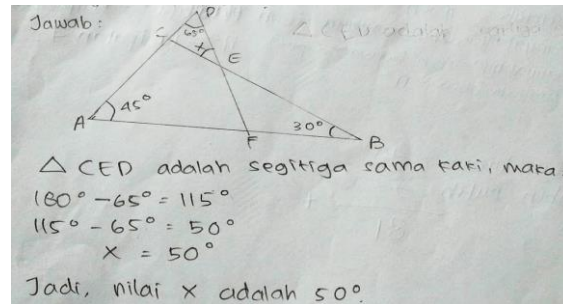 Jawab:
D
C
65°
x
E
45°
A
30°
F
B
△ CED adalah segitiga sama kaki, maka
180° - 65° = 115°
115° - 65° = 50°
x = 50°
Jadi, nilai x adalah 50°.